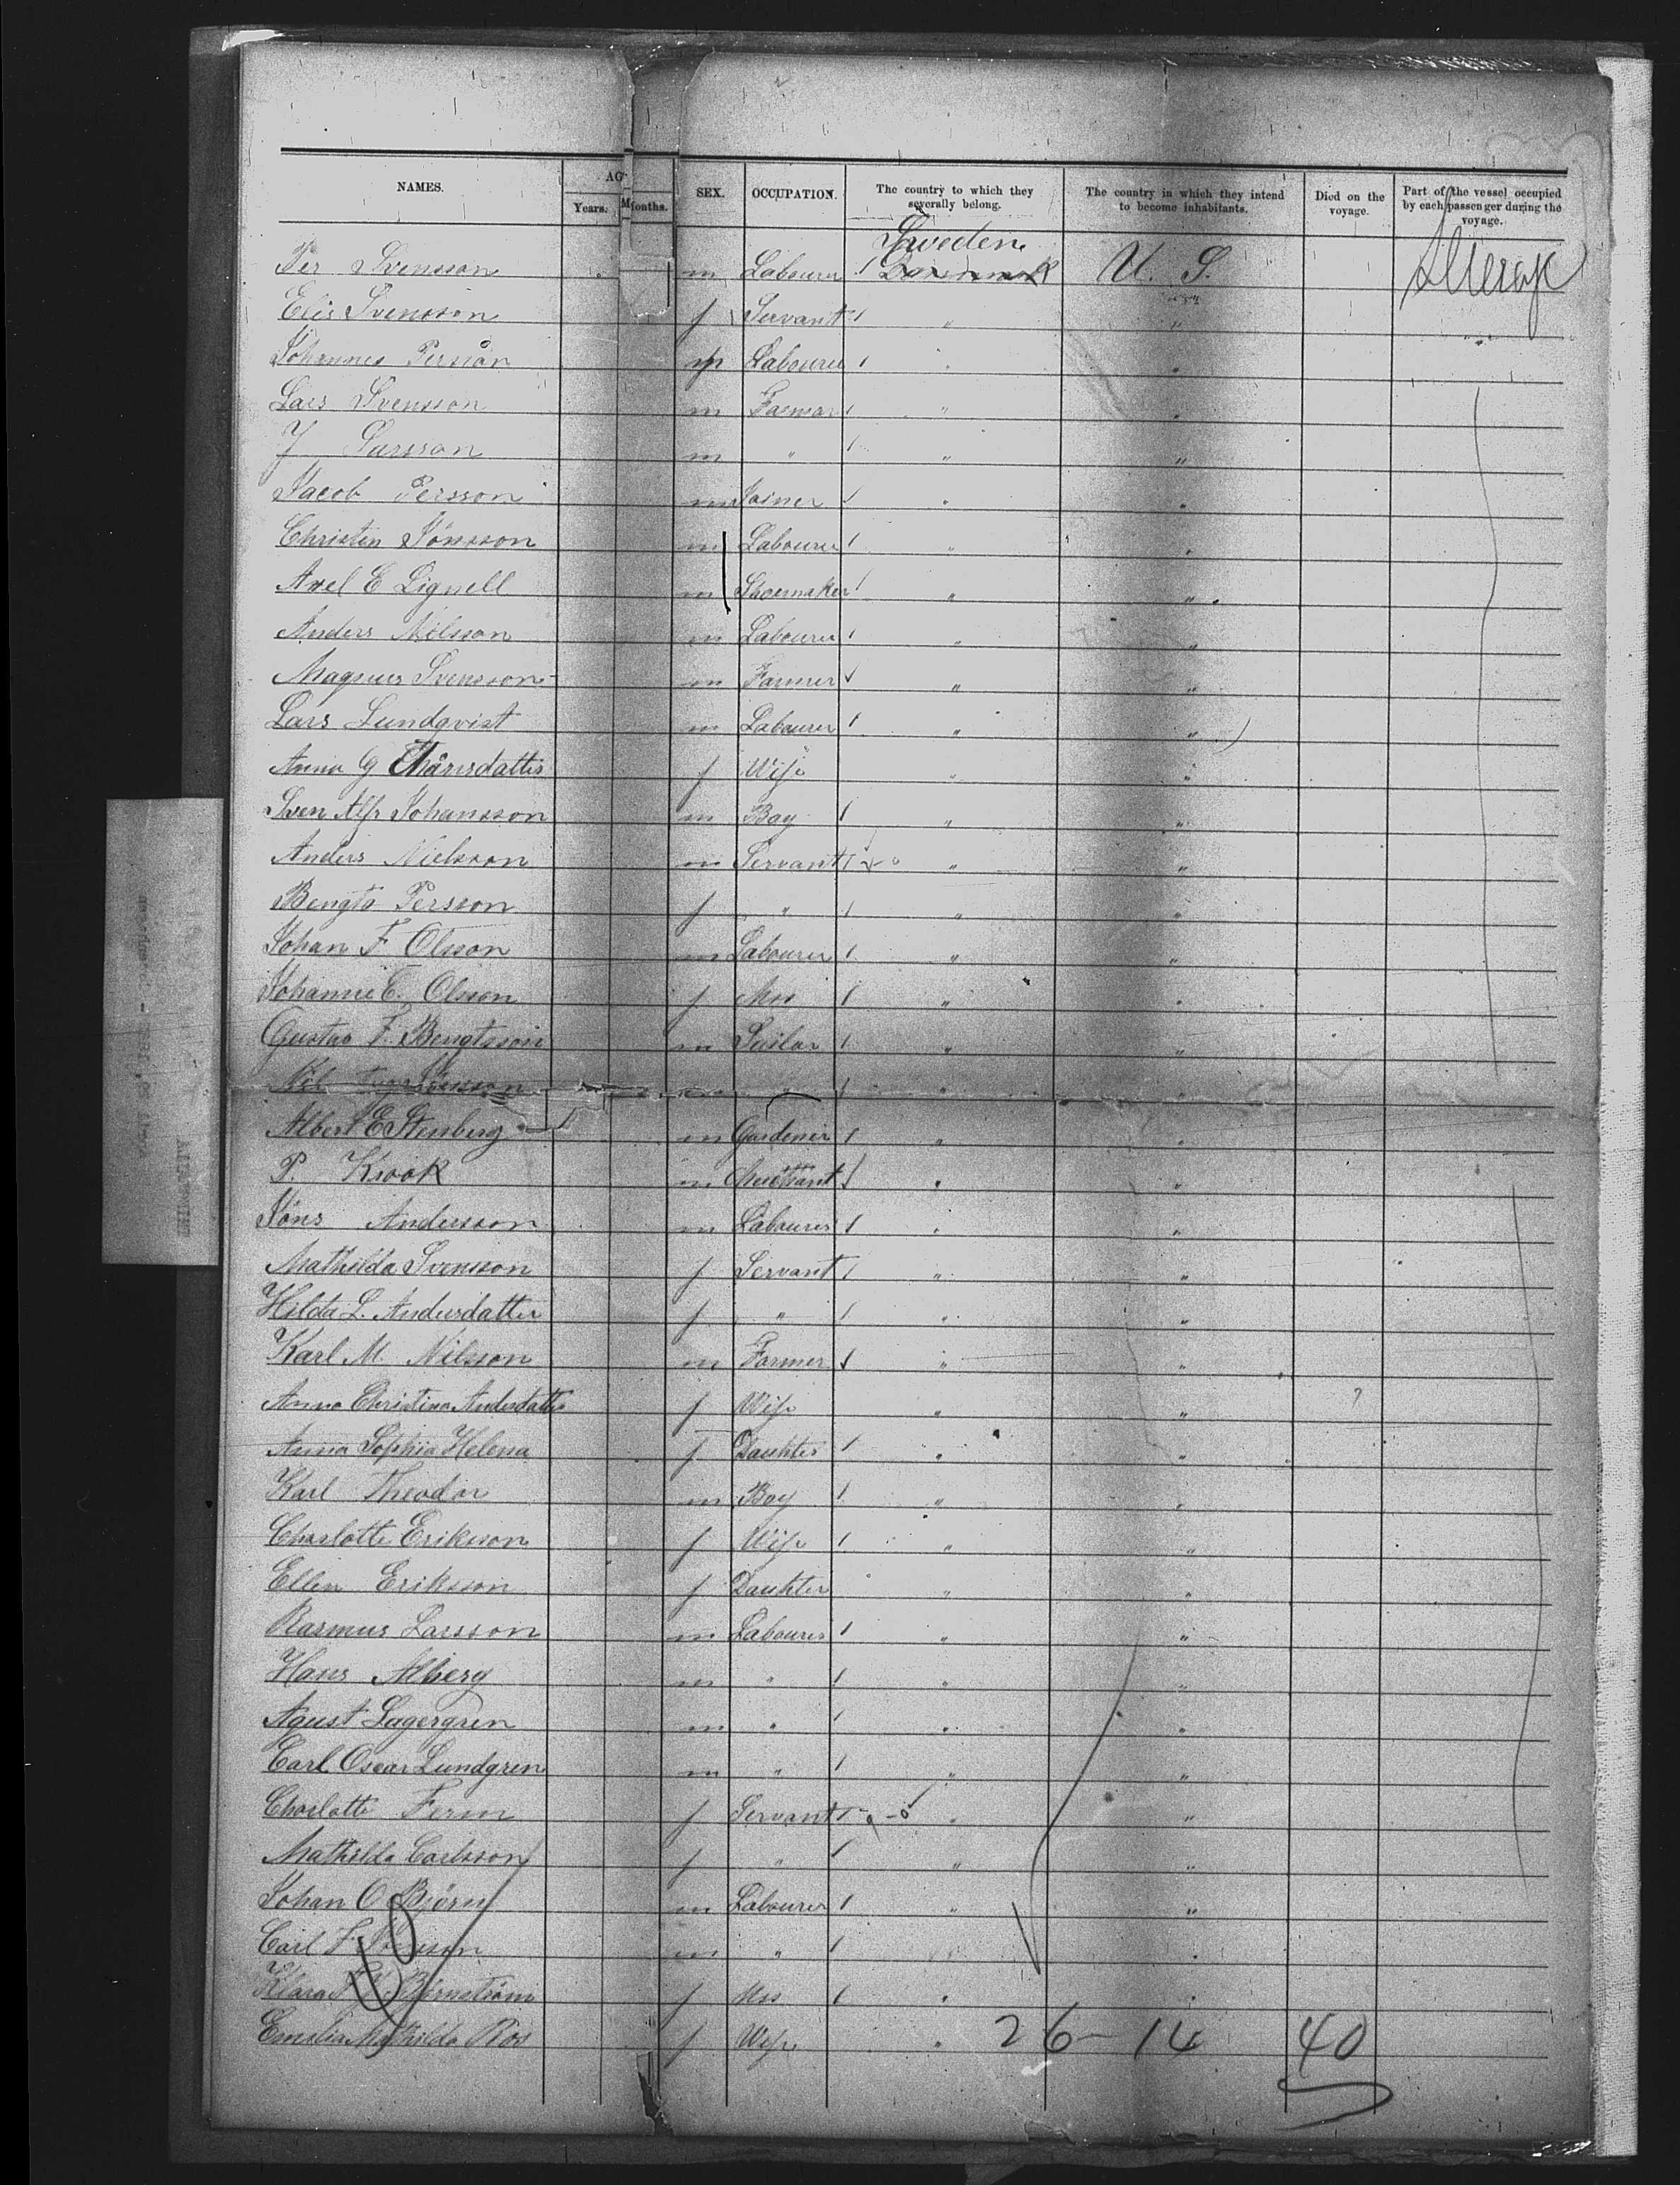 NAMES. AG Years. Months. SEX. OCCUPATION. The country to which they severally belong. The country in which they intend to become inhabitants. Died on the voyage. Part of the vessel occupied by each passenger during the voyage.
Sweden
Per Svensson m Labourer 1 Danemark U. S. Steerage
Elis Svensson f Servant 1 " "
Johannes Persson m Labourer 1 " "
Lars Svensson m Farmar 1 " "
J Larsson m " 1 " "
Jacob Persson m Joiner 1 " "
Christen Jönsson m Labourer 1 " "
Axel E Lignell m Shoemaker 1 " "
Anders Nilsson m Labourer 1 " "
Magnus Svensson m Farmer 1 " "
Lars Lundqvist m Labourer 1 " "
Anna G f Wife " "
Sven Alfr Johansson m Boy 1 " "
Anders Nielsson m Servant 1 " "
Bengta Persson f " 1 " "
Johan F Olsson m Labourer 1 " "
Johanne E. Olsson f Mrs 1 " "
Gustav F. Bengtsson m Sailar 1 " "
m " 1 " "
Albert E Stenberg m Gardener 1 " "
P. Krook m 1 " "
Jöns Andersson m Labourer 1 " "
Mathilda Svensson f Servant 1 " "
Hilda L. Andersdatter f " 1 " "
Karl M. Nilsson m Farmer 1 " "
Anna Christina Andersdatter f Wife " " ?
Anna Sophia Helena f Dauhter 1 " "
Karl Theodor m Boy 1 " "
Charlotte Eriksson f Wife 1 " "
Ellen Eriksson f Dauhter " "
Rasmus Larsson m Labourer 1 " "
Hans Alberg m " 1 " "
Agust Lagergren m " 1 " "
Carl Oscar Lundgren m " 1 " "
Charlotte Ferm f Servant 1 " "
Mathilda Carlsson f " 1 " "
Johan O Björn m Labourer 1 " "
Carl F m " 1 " "
Klara f Mrs 1 " "
Emilia Mathilda Ros f Wife " 26 - 14 40